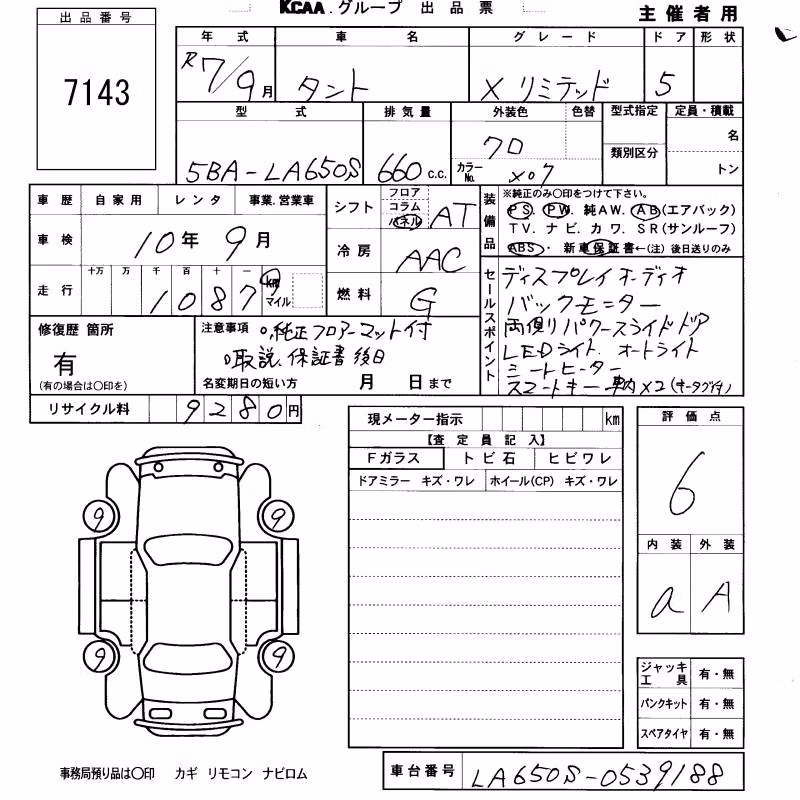 KCAA.グループ 出品票
主催者用
出品番号
7143
年式 車名 グレード ドア 形状
R7/9月 タント Xリミテッド 5
型式 排気量 外装色 色替 型式指定 定員・積載
5BA-LA650S 660 c.c. クロ カラーNo. X07 類別区分 名 トン
車歴 自家用 レンタ 事業.営業車
車検 10年9月
走行 十万 万 千 百 十 一
1087 km マイル
シフト フロア コラム パネル AT
冷房 AAC
燃料 G
装備品
※純正のみ○印をつけて下さい。
PS. PW. 純AW. AB(エアバック)
TV. ナビ. カワ. SR(サンルーフ)
ABS・ 新車保証書←(注)後日送りのみ
セールスポイント
ディスプレイオーディオ
バックモニター
両側パワースライドドア
LEDライト. オートライト
シートヒーター
スマートキー車内X2(キータグイキ)
修復歴 箇所
有
(有の場合は○印を)
注意事項
○.純正フロアーマット付
○取説.保証書後日
名変期日の短い方 月 日まで
リサイクル料 9280円
現メーター指示 km
【査定員記入】
Fガラス トビ石 ヒビワレ
ドアミラー キズ・ワレ ホイール(CP) キズ・ワレ
評価点
6
内装 外装
a A
9 9
9 9
ジャッキ工具 有・無
パンクキット 有・無
スペアタイヤ 有・無
事務局預り品は○印 カギ リモコン ナビロム
車台番号 LA650S-0539188